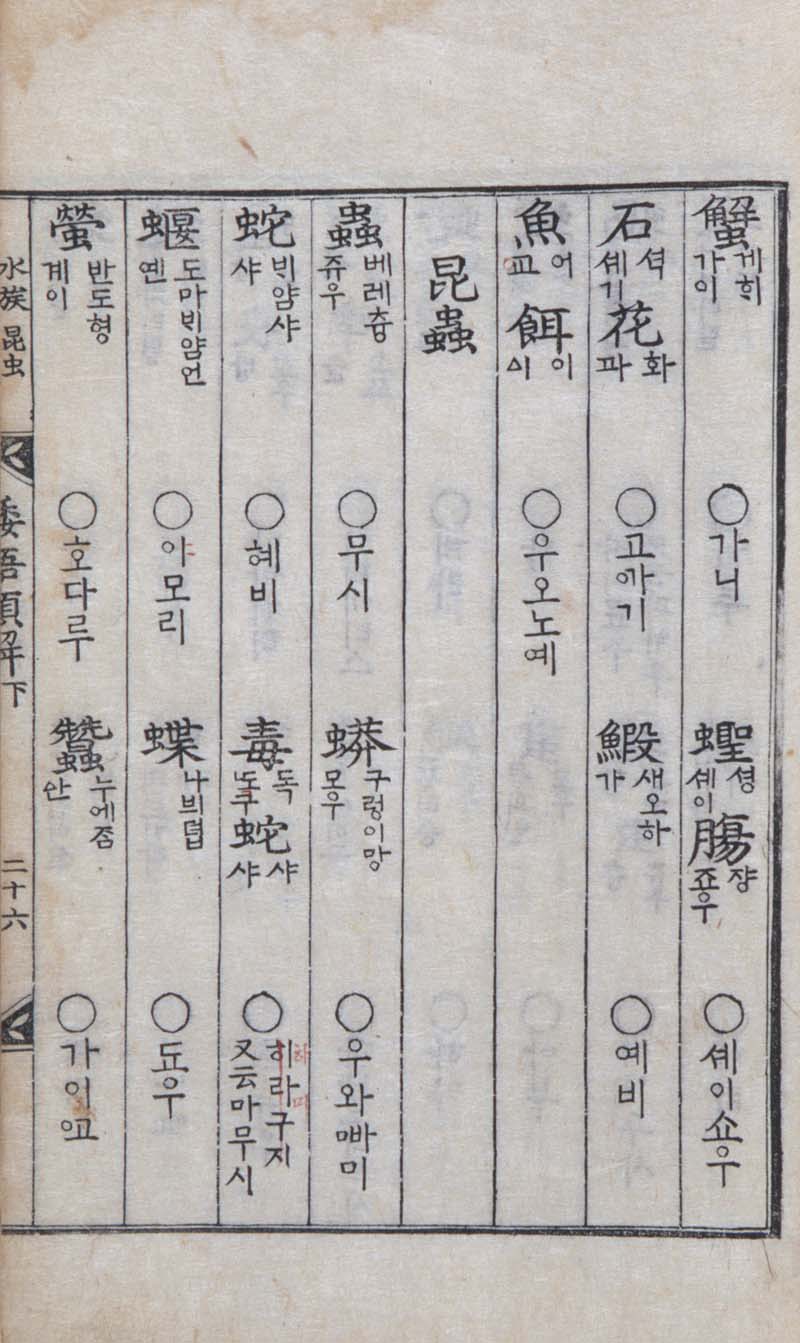 蟹 게 ᄒᆡ 가이 ○ 가니 蟶 셩 셰이 膓 쟝 죠우 ○ 셰이쇼우
石 셕 셰기 花 화 과 ○ 고ᄭᅡ기 鰕 새오 하 가 ○ 예비
魚 어 ᄭᅭ 餌 이 ○ 우오노예
昆蟲
蟲 베레 츙 쥬우 ○ 무시 蟒 구렁이 망 모우 ○ 우와ᄲᅡ미
蛇 ᄇᆡ암 샤 샤 ○ 헤비 毒 독 도구 蛇 샤 샤 ○ 히라구지 又云마무시
蝘 도마ᄇᆡ암 언 옌 ○ 야모리 蝶 나븨 뎝 ○ 됴우
螢 반도 형 계이 ○ 호다루 蠶 누에 좀 안 ○ 가이고
水族 昆虫 倭語類解下 二十六